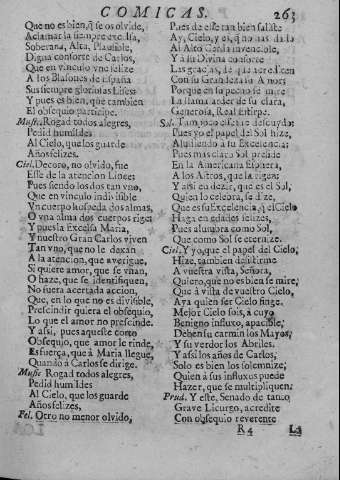 COMICAS. 263
Que no es bien, q̃ se os olvide,
Aclamar la siempre excelsa,
Soberana, Alta, Plausible,
Digna consorte de Carlos,
Que en vinculo vne felize
A los Blasones de España
Sus siempre gloriosas Lises.
Y pues es bien, que tambien
El obsequio participe.
Music. Rogad todos alegres,
Pedid humildes
Al Cielo, que los guarde
Años felizes.
Ciel. Decoro, no olvido, fue
Esse de la atencion Lince;
Pues siendo los dos tan vno,
Que en vinculo indivisible
Vn cuerpo hospeda dos almas,
O vna alma dos cuerpos rige;
Y puesla Excelsa Maria,
Y nuestro Gran Carlos viven
Tan vno, que no le dexàn
A la atencion, que averigue,
Si quiere amor, que se vnan,
O haze, que se identifiquen,
No fuera acertada accion,
Que, en lo que no es divisible,
Prescindir quiera el obsequio,
Lo que el amor no prescinde.
Y assi, pues aqueste corto
Obsequio, que amor le rinde,
Esfuerça, que à Maria llegue,
Quando à Carlos se dirige.
Music Rogad todos alegres,
Pedid humildes
Al Cielo, que los guarde
Años felizes.
Fel. Otro no menor olvido,
Pues de esse tan bien saliste
Ay, Cielo, y es, q̃ no has dado
Al Alto Cerda invencible,
Y à su Divina consorte
Las gracias, de que acrediten
Con su Grandeza su Amor;
Porque en su pecho se mire
La llama arder de su clara,
Generosa, Real Estirpe.
Sol. Tampoco esse es descuydo;
Pues yo el papel del Sol hize,
Aludiendo à su Excelencia;
Pues mas claro Sol preside
En la Americana Esphera,
A los Astros, que la rigen;
Y assi en dezir, que es el Sol,
Quien lo celebra, se dize,
Que es su Excelencia, q̃ el Cielo
Haga en edades felizes,
Pues alumbra como Sol,
Que como Sol se eternize.
Ciel. Y yo, que el papel del Cielo,
Hize, tambien dessistirme
A vuestra vista, Señora,
Quiero, que no es bien se mire,
Que à vista de vuestro Cielo,
Aya quien ser Cielo finge.
Mejor Cielo sois, à cuyo
Benigno influxo, apacible,
Deben su carmin los Mayos,
Y su verdor los Abriles.
Y assi los años de Carlos,
Solo es bien los solemnize;
Quien à sus influxos puede
Hazer, que se multipliquen.
Prud. Y este, Senado de tanto
Grave Licurgo, acredite
Con obsequio reverente
R 4 La